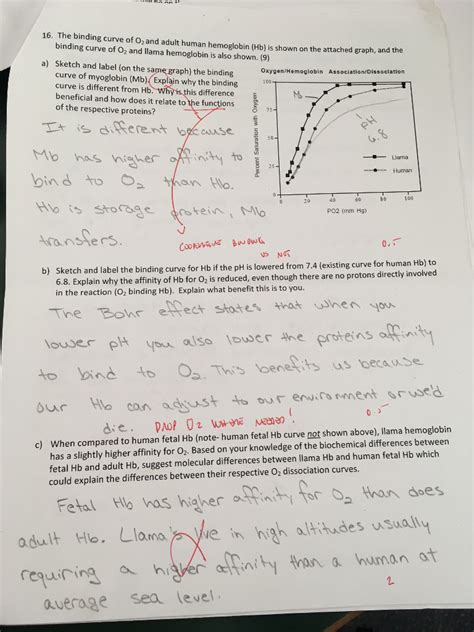 16. The binding curve of O2 and adult human hemoglobin (Hb) is shown on the attached graph, and the
binding curve of O2 and llama hemoglobin is also shown. (9)
a) Sketch and label (on the same graph) the binding
curve of myoglobin (Mb). Explain why the binding
curve is different from Hb. Why is this difference
beneficial and how does it relate to the functions
of the respective proteins?
Oxygen/Hemoglobin Association/Dissociation
Percent Saturation with Oxygen
100
75
50
25
0
0 20 40 60 80 100
PO2 (mm Hg)
Mb
pH
6.8
Llama
Human
It is different because
Mb has higher affinity to
bind to O2 than Hb.
Hb is storage protein, Mb
transfers.
COOPERATIVE BINDING
VS NOT
0.5
b) Sketch and label the binding curve for Hb if the pH is lowered from 7.4 (existing curve for human Hb) to
6.8. Explain why the affinity of Hb for O2 is reduced, even though there are no protons directly involved
in the reaction (O2 binding Hb). Explain what benefit this is to you.
The Bohr effect states that when you
lower pH you also lower the proteins affinity
to bind to O2. This benefits us because
our Hb can adjust to our environment or we'd
die.
DROP O2 WHERE NEEDED!
0.5
c) When compared to human fetal Hb (note- human fetal Hb curve not shown above), llama hemoglobin
has a slightly higher affinity for O2. Based on your knowledge of the biochemical differences between
fetal Hb and adult Hb, suggest molecular differences between llama Hb and human fetal Hb which
could explain the differences between their respective O2 dissociation curves.
Fetal Hb has higher affinity for O2 than does
adult Hb. Llama's live in high altitudes usually
requiring a higher affinity than a human at
average sea level.
2